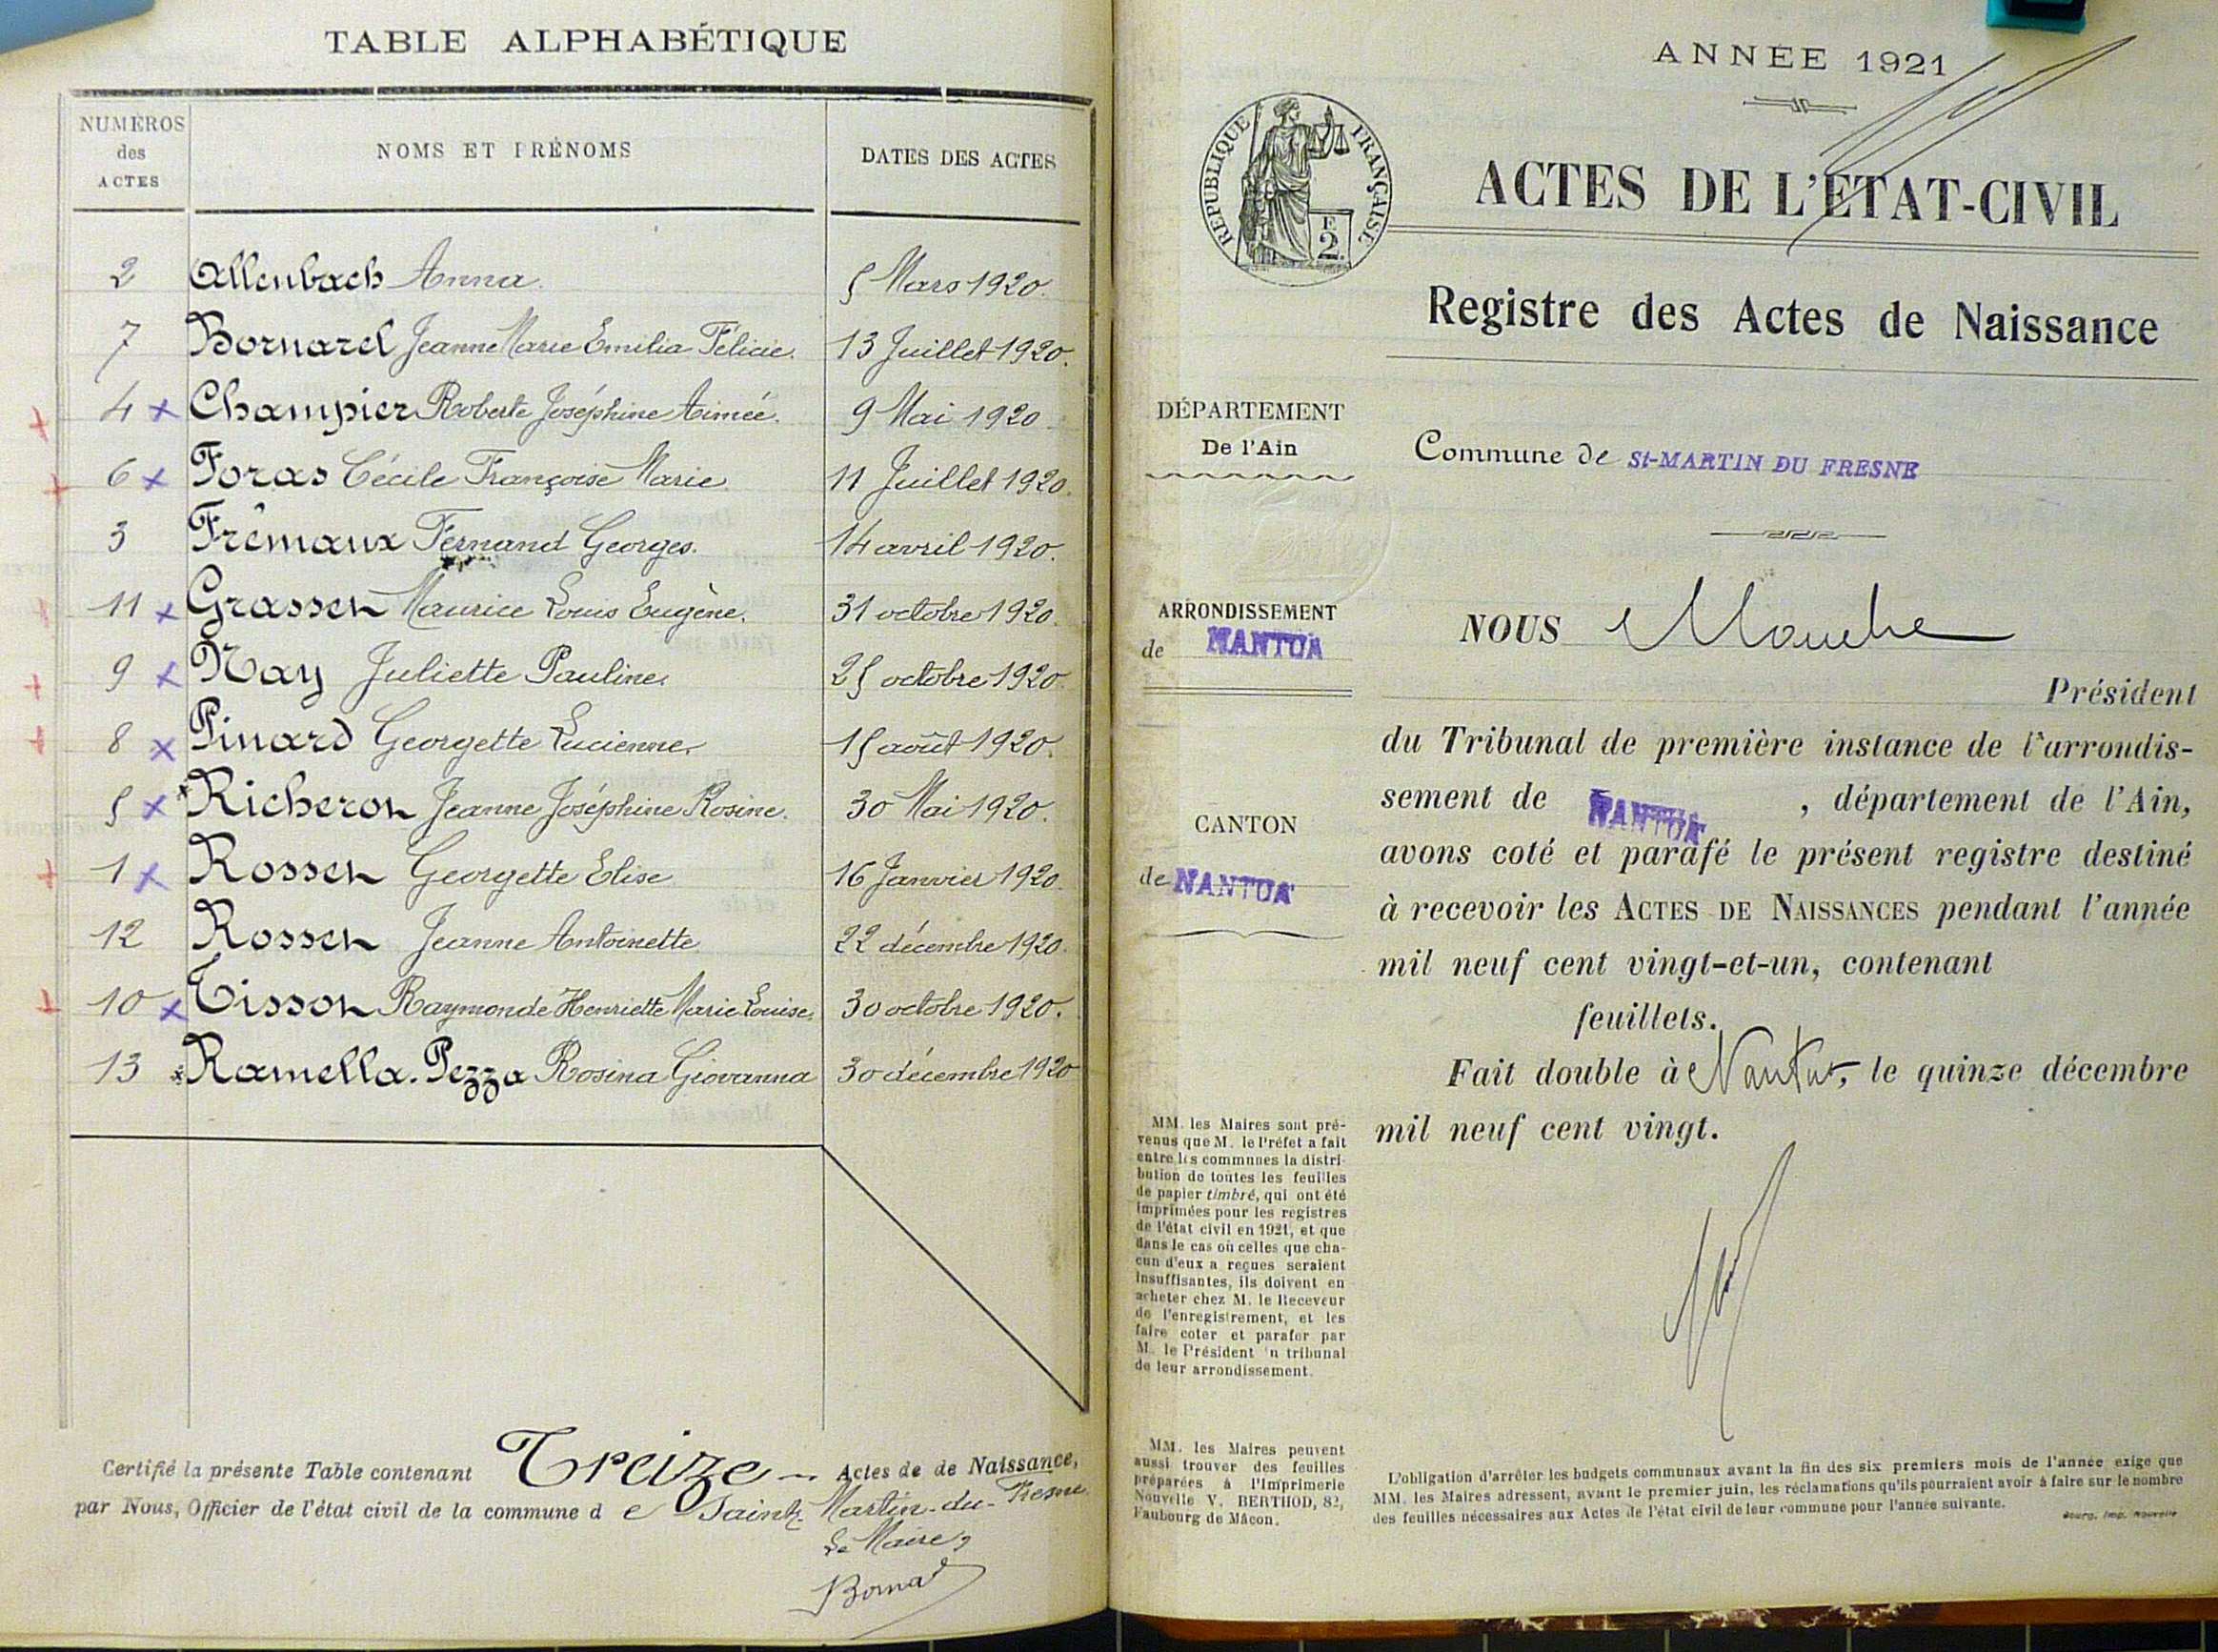 TABLE ALPHABÉTIQUE
NUMÉROS des ACTES NOMS ET PRÉNOMS DATES DES ACTES
2 Allenbach Anna. 5 Mars 1920.
7 Bornarel Jeanne Marie Emilia Félicie. 13 Juillet 1920.
4 x Champier Roberte Joséphine Aimée. 9 Mai 1920
6 x Foras Cécile Françoise Marie. 11 Juillet 1920.
3 Frémaux Fernand Georges. 14 avril 1920.
11 x Grasset Maurice Louis Eugène. 31 octobre 1920.
9 x Nay Juliette Pauline. 25 octobre 1920.
8 x Pinard Georgette Lucienne. 15 août 1920.
5 x Richerot Jeanne Joséphine Rosine. 30 Mai 1920.
1 x Rosset Georgette Elise 16 Janvier 1920.
12 Rosset Jeanne Antoinette 22 décembre 1920.
10 x Tissot Raymonde Henriette Marie Louise. 30 octobre 1920.
13 Ramella-Pezza Rosina Giovanna 30 décembre 1920
Certifié la présente Table contenant Treize Actes de de Naissance,
par Nous, Officier de l'état civil de la commune d e Saint-Martin-du-Fresne.
Le Maire,
ANNÉE 1921
RÉPUBLIQUE FRANÇAISE
2
ACTES DE L'ÉTAT-CIVIL
Registre des Actes de Naissance
DÉPARTEMENT
De l'Ain
Commune de St-MARTIN DU FRESNE
ARRONDISSEMENT
de NANTUA
NOUS
Président
du Tribunal de première instance de l'arrondis-
sement de NANTUA , département de l'Ain,
CANTON
de NANTUA
avons coté et parafé le présent registre destiné
à recevoir les ACTES DE NAISSANCES pendant l'année
mil neuf cent vingt-et-un, contenant
feuillets.
Fait double à Nantua, le quinze décembre
mil neuf cent vingt.
MM. les Maires sont pré-
venus que M. le Préfet a fait
entre les communes la distri-
bution de toutes les feuilles
de papier timbré, qui ont été
imprimées pour les registres
de l'état civil en 1921, et que
dans le cas où celles que cha-
cun d'eux a reçues seraient
insuffisantes, ils doivent en
acheter chez M. le Receveur
de l'enregistrement, et les
faire coter et parafer par
M. le Président 'u tribunal
de leur arrondissement.
MM. les Maires peuvent
aussi trouver des feuilles
préparées à l'Imprimerie
Nouvelle V. BERTHOD, 82,
Faubourg de Mâcon.
L'obligation d'arrêter les budgets communaux avant la fin des six premiers mois de l'année exige que
MM. les Maires adressent, avant le premier juin, les réclamations qu'ils pourraient avoir à faire sur le nombre
des feuilles nécessaires aux Actes de l'état civil de leur commune pour l'année suivante.
Bourg, Imp. Nouvelle